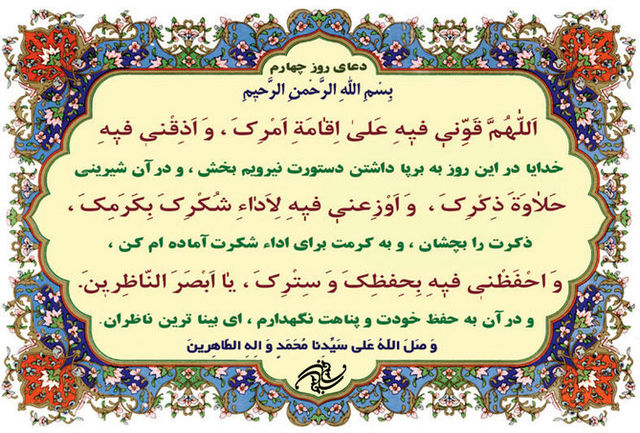 دعای روز چهارم
بِسْمِ اللهِ الرَّحْمنِ الرَّحیمِ
اَللّهُمَّ قَوِّنی فیهِ عَلیٰ اِقامَةِ اَمْرِکَ ، وَ اَذِقْنی فیهِ
خدایا در این روز به برپا داشتن دستورت نیرویم بخش ، و در آن شیرینی
حَلاوَةَ ذِکْرِکَ ، وَ اَوْزِعْنی فیهِ لِاَداءِ شُکْرِکَ بِکَرَمِکَ ،
ذکرت را بچشان ، و به کرمت برای اداء شکرت آماده ام کن ،
وَ احْفَظْنی فیهِ بِحِفْظِکَ وَ سِتْرِکَ ، یا اَبْصَرَ النّاظِرینَ.
و در آن به حفظ خودت و پناهت نگهدارم ، ای بینا ترین ناظران.
وَ صَلَ اللهُ عَلی سَیِّدِنا مُحَمَدٍ وَ الِهِ الطاهِرینَ